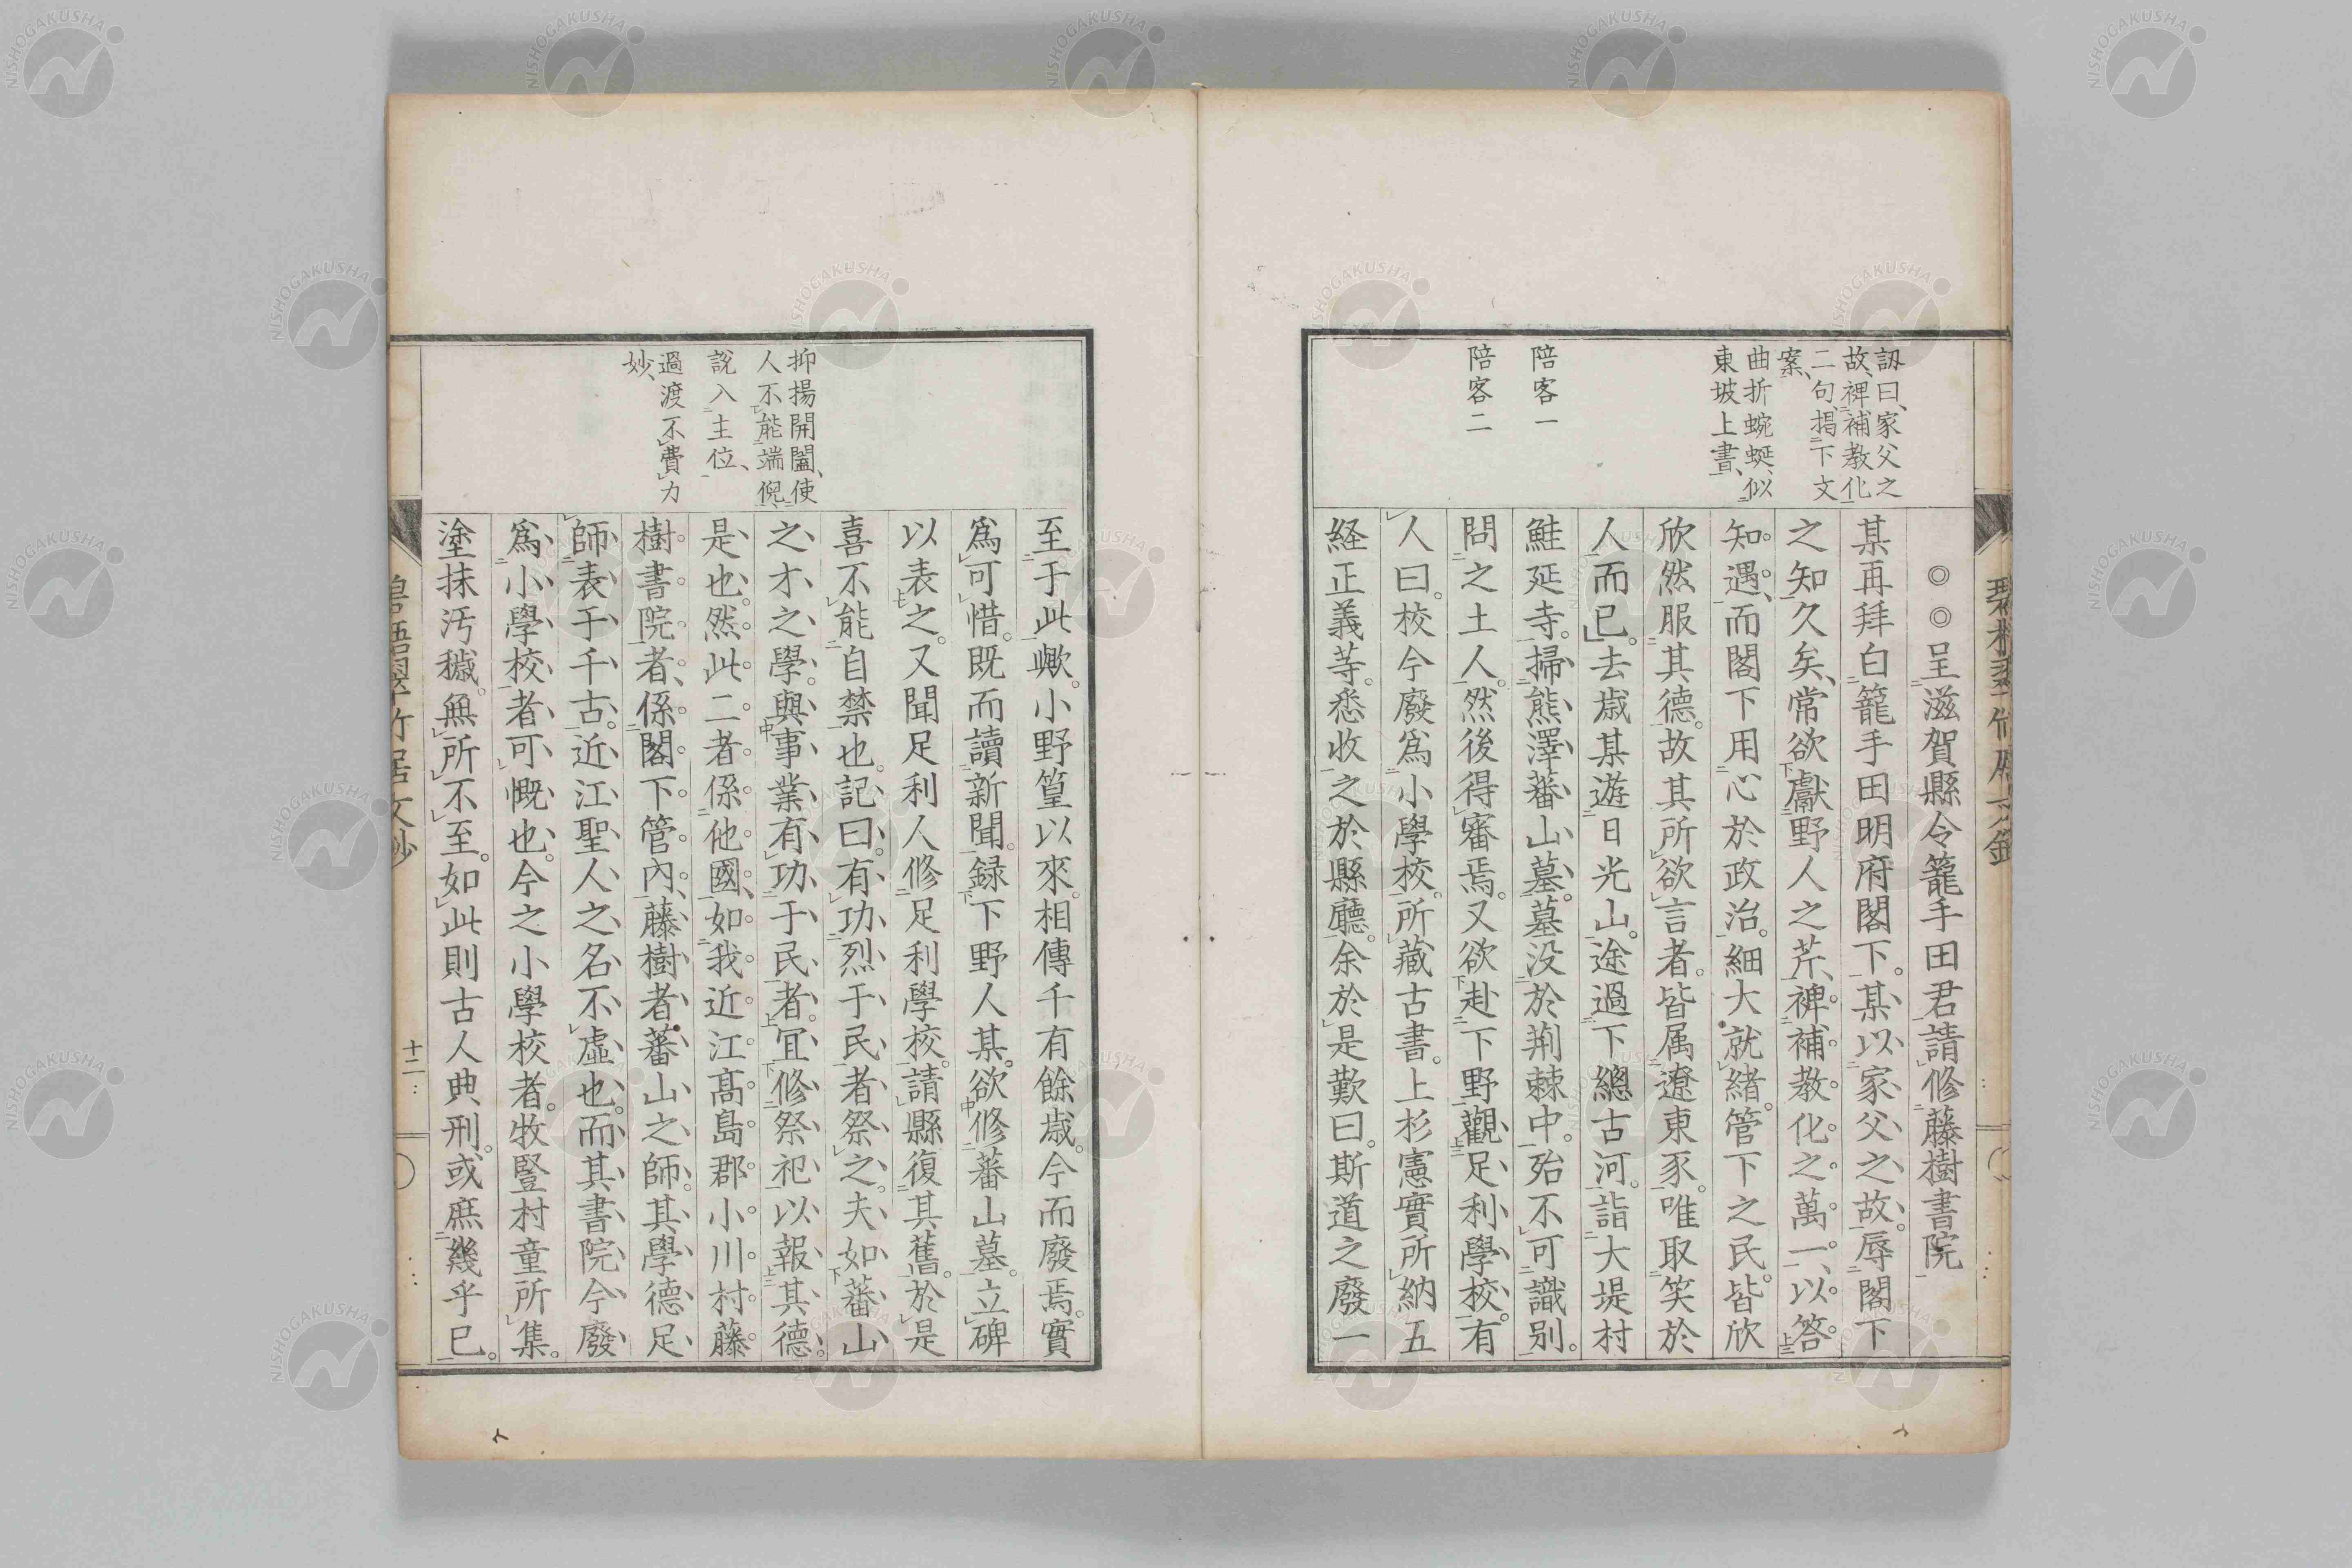 訒曰、家父之
故、裨補教化
二句、揭下文
案、
曲折蜿蜒、似
東坡上書、
陪客一
陪客二
◎◎呈滋賀縣令籠手田君請修藤樹書院
某再拜白籠手田明府閣下。某以家父之故。辱閣下
之知久矣、常欲獻野人之芹、裨補教化之萬一、以答
知遇、而閣下用心於政治。細大就緒。管下之民。皆欣
欣然服其德。故其所欲言者。皆属遼東豕。唯取笑於
人而已。去歳某遊日光山。途過下總古河。詣大堤村
鮭延寺。掃熊澤蕃山墓。墓没於荆棘中。殆不可識别。
問之土人。然後得審焉。又欲赴下野觀足利學校。有
人曰。校今廢爲小學校。所藏古書。上杉憲實所納五
経正義等。悉收之於縣廳。余於是歎曰。斯道之廢一
抑揚開闔、使
人不能端倪、
說入主位、
過渡不費力
妙、
至于此歟。小野篁以來。相傳千有餘歳。今而廢焉。實
爲可惜。既而讀新聞。録下野人某。欲修蕃山墓。立碑
以表之。又聞足利人修足利學校。請縣復其舊。於是
喜不能自禁也。記曰。有功烈于民者祭之。夫如蕃山
之才之學。與事業有功于民者。宜修祭祀以報其德。
是也。然此二者。係他國、如我近江高島郡小川村藤
樹書院者、係閣下管内、藤樹者蕃山之師。其學德足
師表于千古。近江聖人之名不虛也。而其書院今廢
爲小學校者。可慨也。今之小學校者。牧豎村童所集。
塗抹汚穢。無所不至。如此則古人典刑。或庶幾乎已。
十二